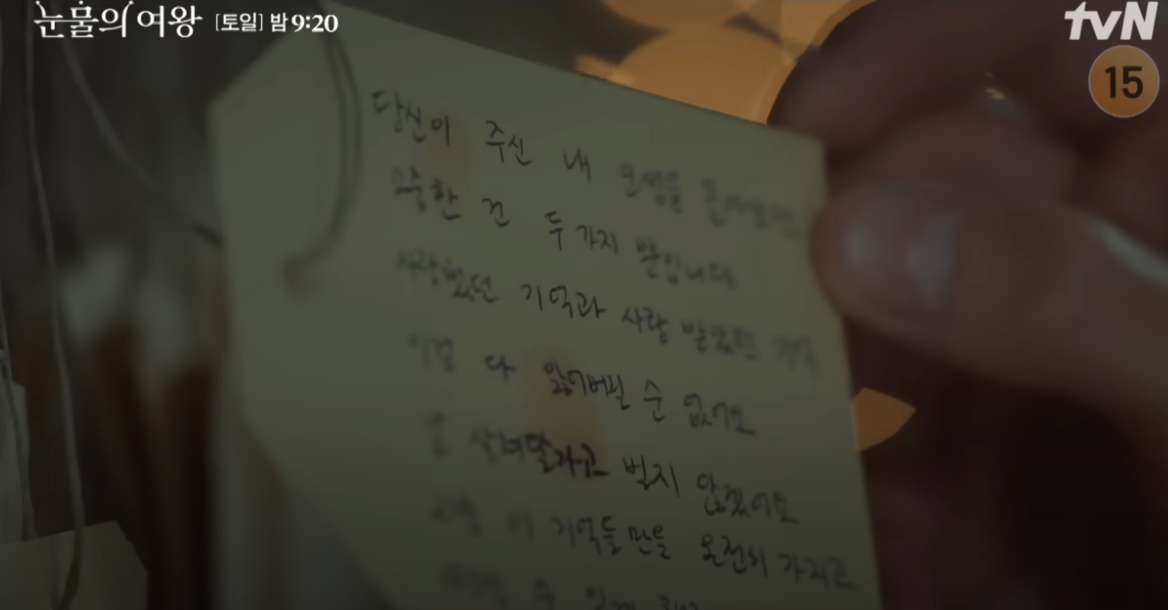 눈물의 여왕 [토일] 밤 9:20
tvN
15
당신이 주신 내
소중한 건 두 가지 뿐입니다
사랑했던 기억과 사랑 받았던 기억
다 잃어버릴 순 없어요
살려달라고 빌지 않겠어요
이 기억들만을 온전히 가지고
수 있게